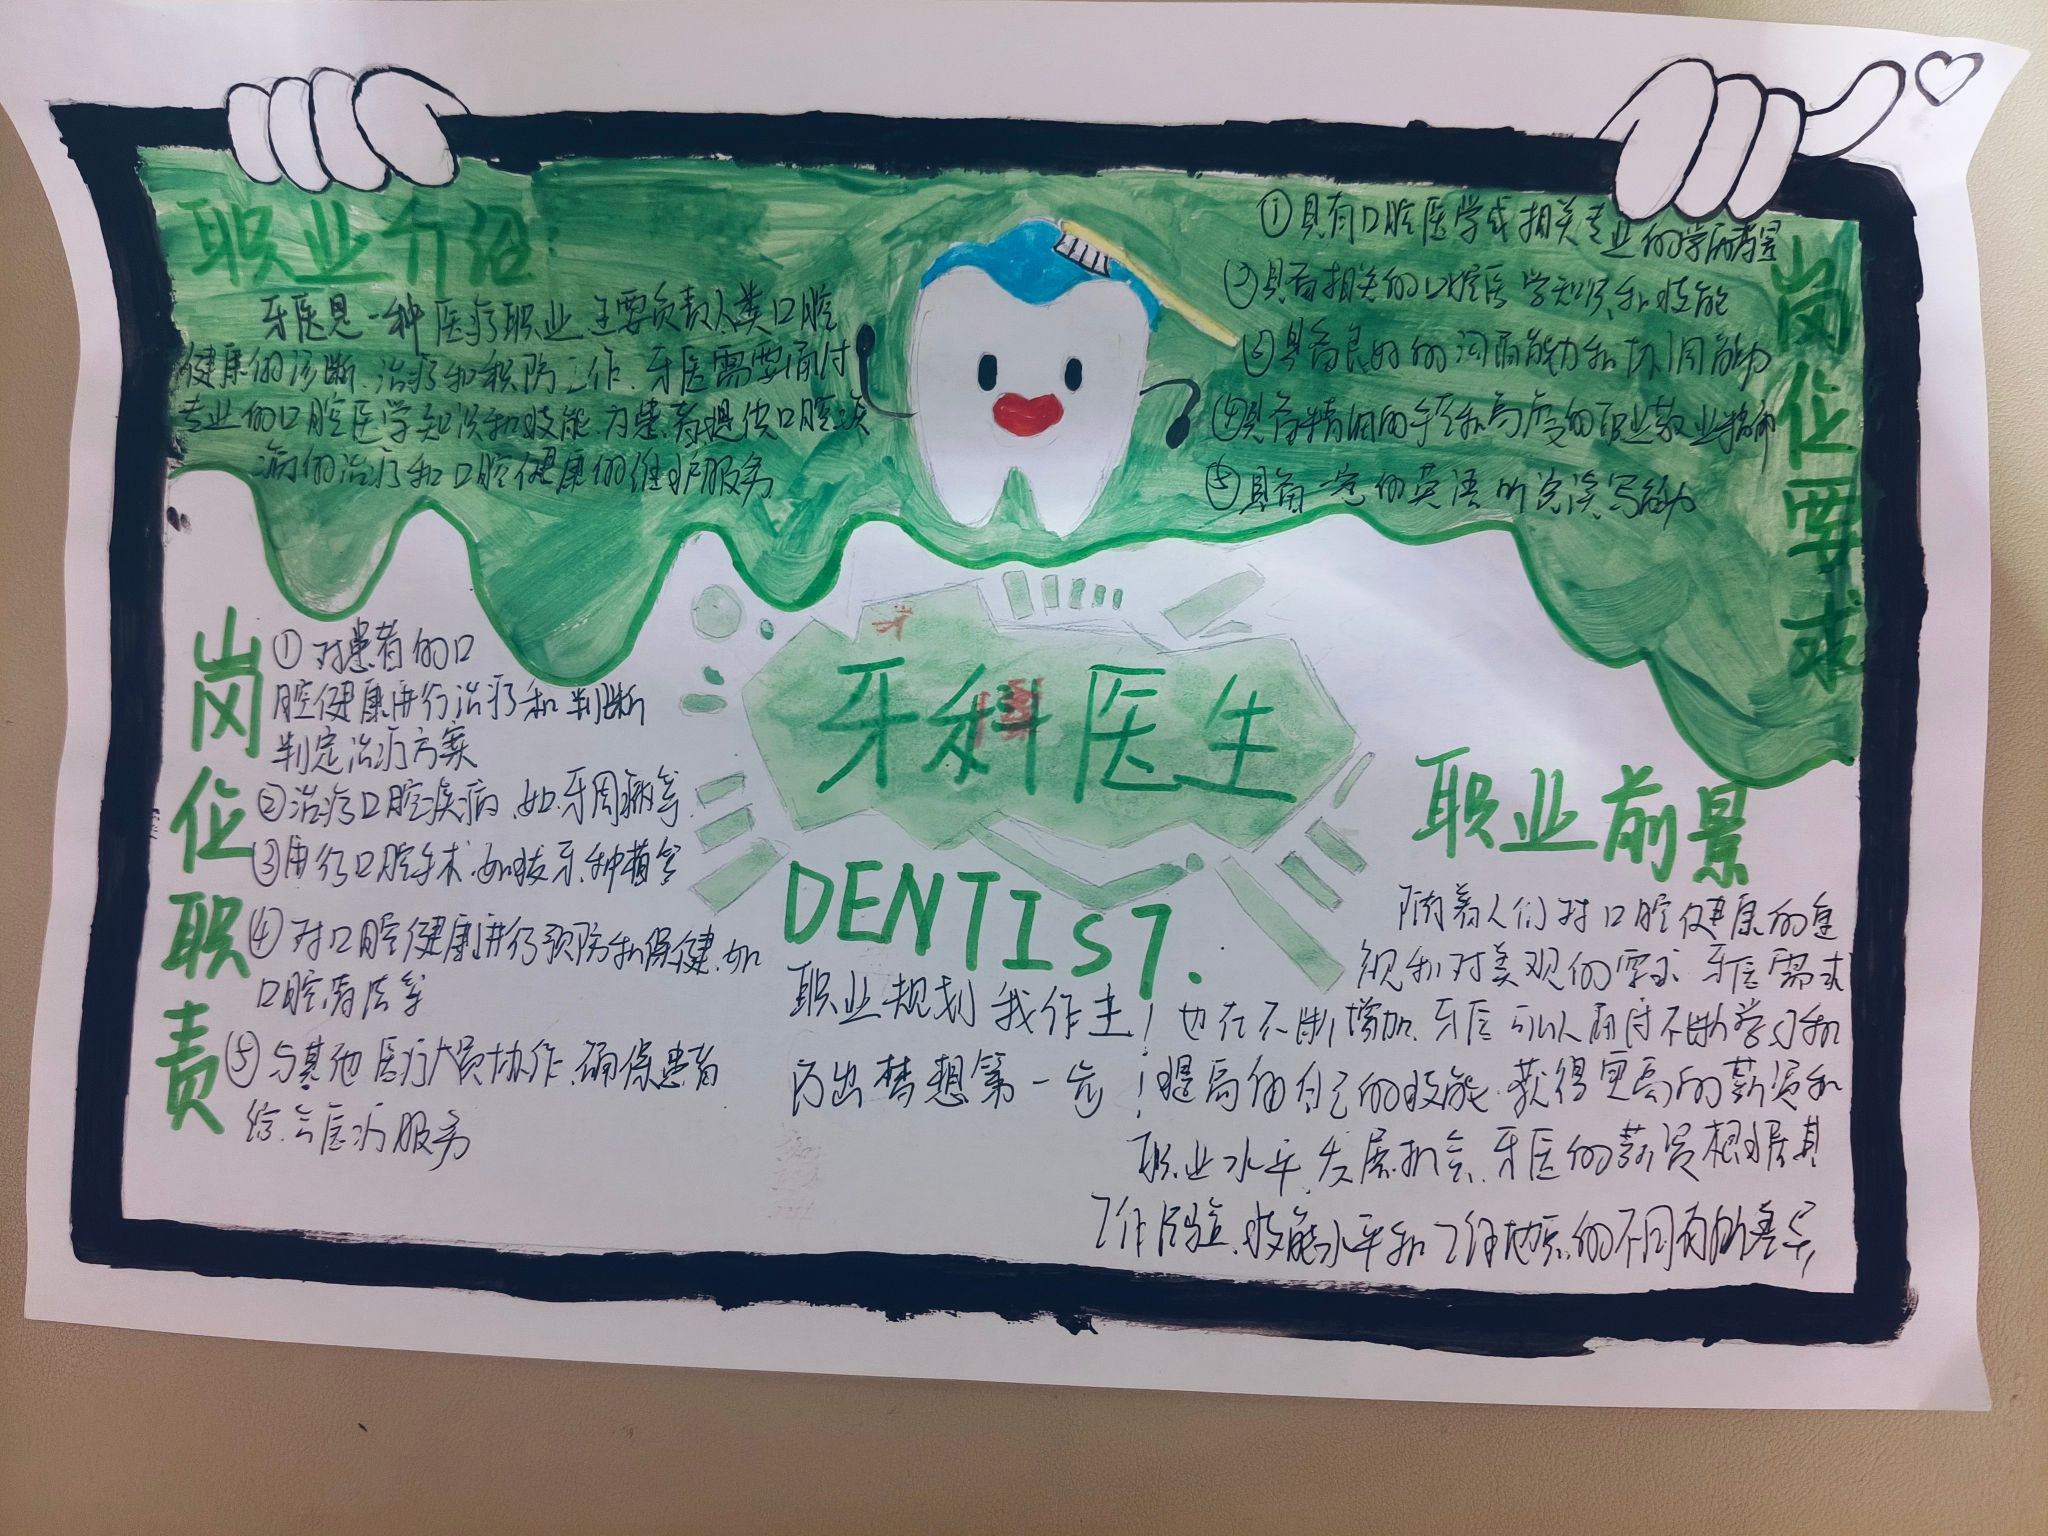 职业介绍:
牙医是一种医疗职业,主要负责人类口腔
健康的诊断、治疗和预防工作,牙医需要
专业的口腔医学知识和技能,为患者提供口腔疾
病的治疗和口腔健康的维护服务
岗位要求
①具有口腔医学或相关专业的学历背景
②具有相关的口腔医学知识和技能
③具备良好的沟通能力和协调能力
④具有精细的手法和高度的职业敬业精神
⑤具备一定的英语听说读写能力
岗位职责
①对患者的口
腔健康进行治疗和判断
判定治疗方案
②治疗口腔疾病,如牙周病等
③进行口腔手术,如拔牙、种植等
④对口腔健康进行预防和保健,如
口腔清洁等
⑤与其他医疗人员协作,确保患者
综合医疗服务
牙科医生
DENTIST.
职业规划我作主!
迈出梦想第一步!
职业前景
随着人们对口腔健康的重
视和对美观的需求,牙医需求
也在不断增加,牙医可以通过不断学习和
提高自己的技能,获得更高的薪资和
职业水平,发展机会,牙医的薪资根据其
工作经验、技能水平和工作地点的不同有所差异,